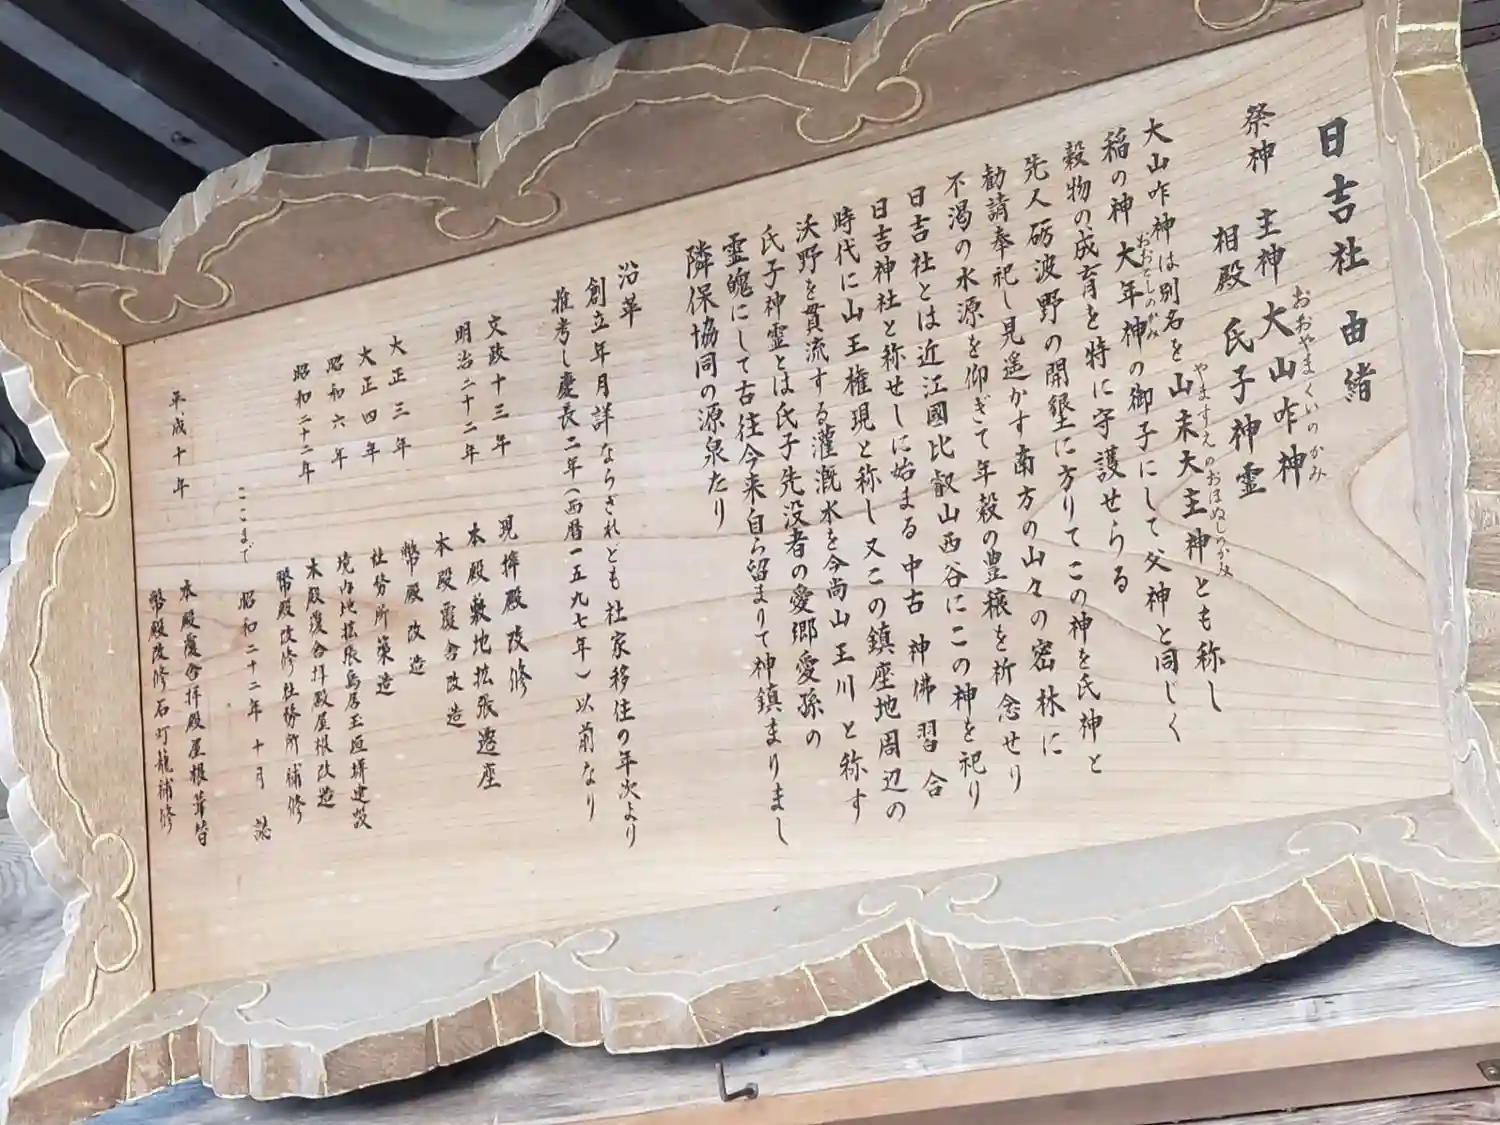 日吉社 由緒
祭神 主神 大山咋神
おおやまくいのかみ
相殿 氏子神霊
大山咋神は別名を山末大主神とも称し
やますえのおほぬしのかみ
稲の神大年神の御子にして父神と同じく
おおとしのかみ
穀物の成育を特に守護せらる
先人砺波野の開墾に方りてこの神を氏神と
勧請奉祀し見遥かす南方の山々の密林に
不渇の水源を仰ぎて年穀の豊穣を祈念せり
日吉社とは近江國比叡山西谷にこの神を祀り
日吉神社と称せしに始まる 中古 神佛習合
時代に山王権現と称し又この鎮座地周辺の
沃野を貫流する灌漑水を今尚山王川と称す
氏子神霊とは氏子先没者の愛郷愛孫の
霊魄にして古往今来自ら留まりて神鎮まりまし
隣保協同の源泉たり
沿革
創立年月詳ならざれども社家移住の年次より
推考し慶長二年(西暦一五九七年)以前なり
文政十三年 現拝殿改修
明治二十二年 本殿敷地拡張遷座
本殿覆舎改造
大正三年 幣殿改造
大正四年 社務所築造
昭和六年 境内地拡張鳥居玉垣塀建設
昭和二十二年 本殿覆舎拝殿屋根改造
幣殿改修社務所補修
ここまで 昭和二十二年 十月 誌
平成十年 本殿覆舎拝殿屋根葺替
幣殿改修石灯籠補修